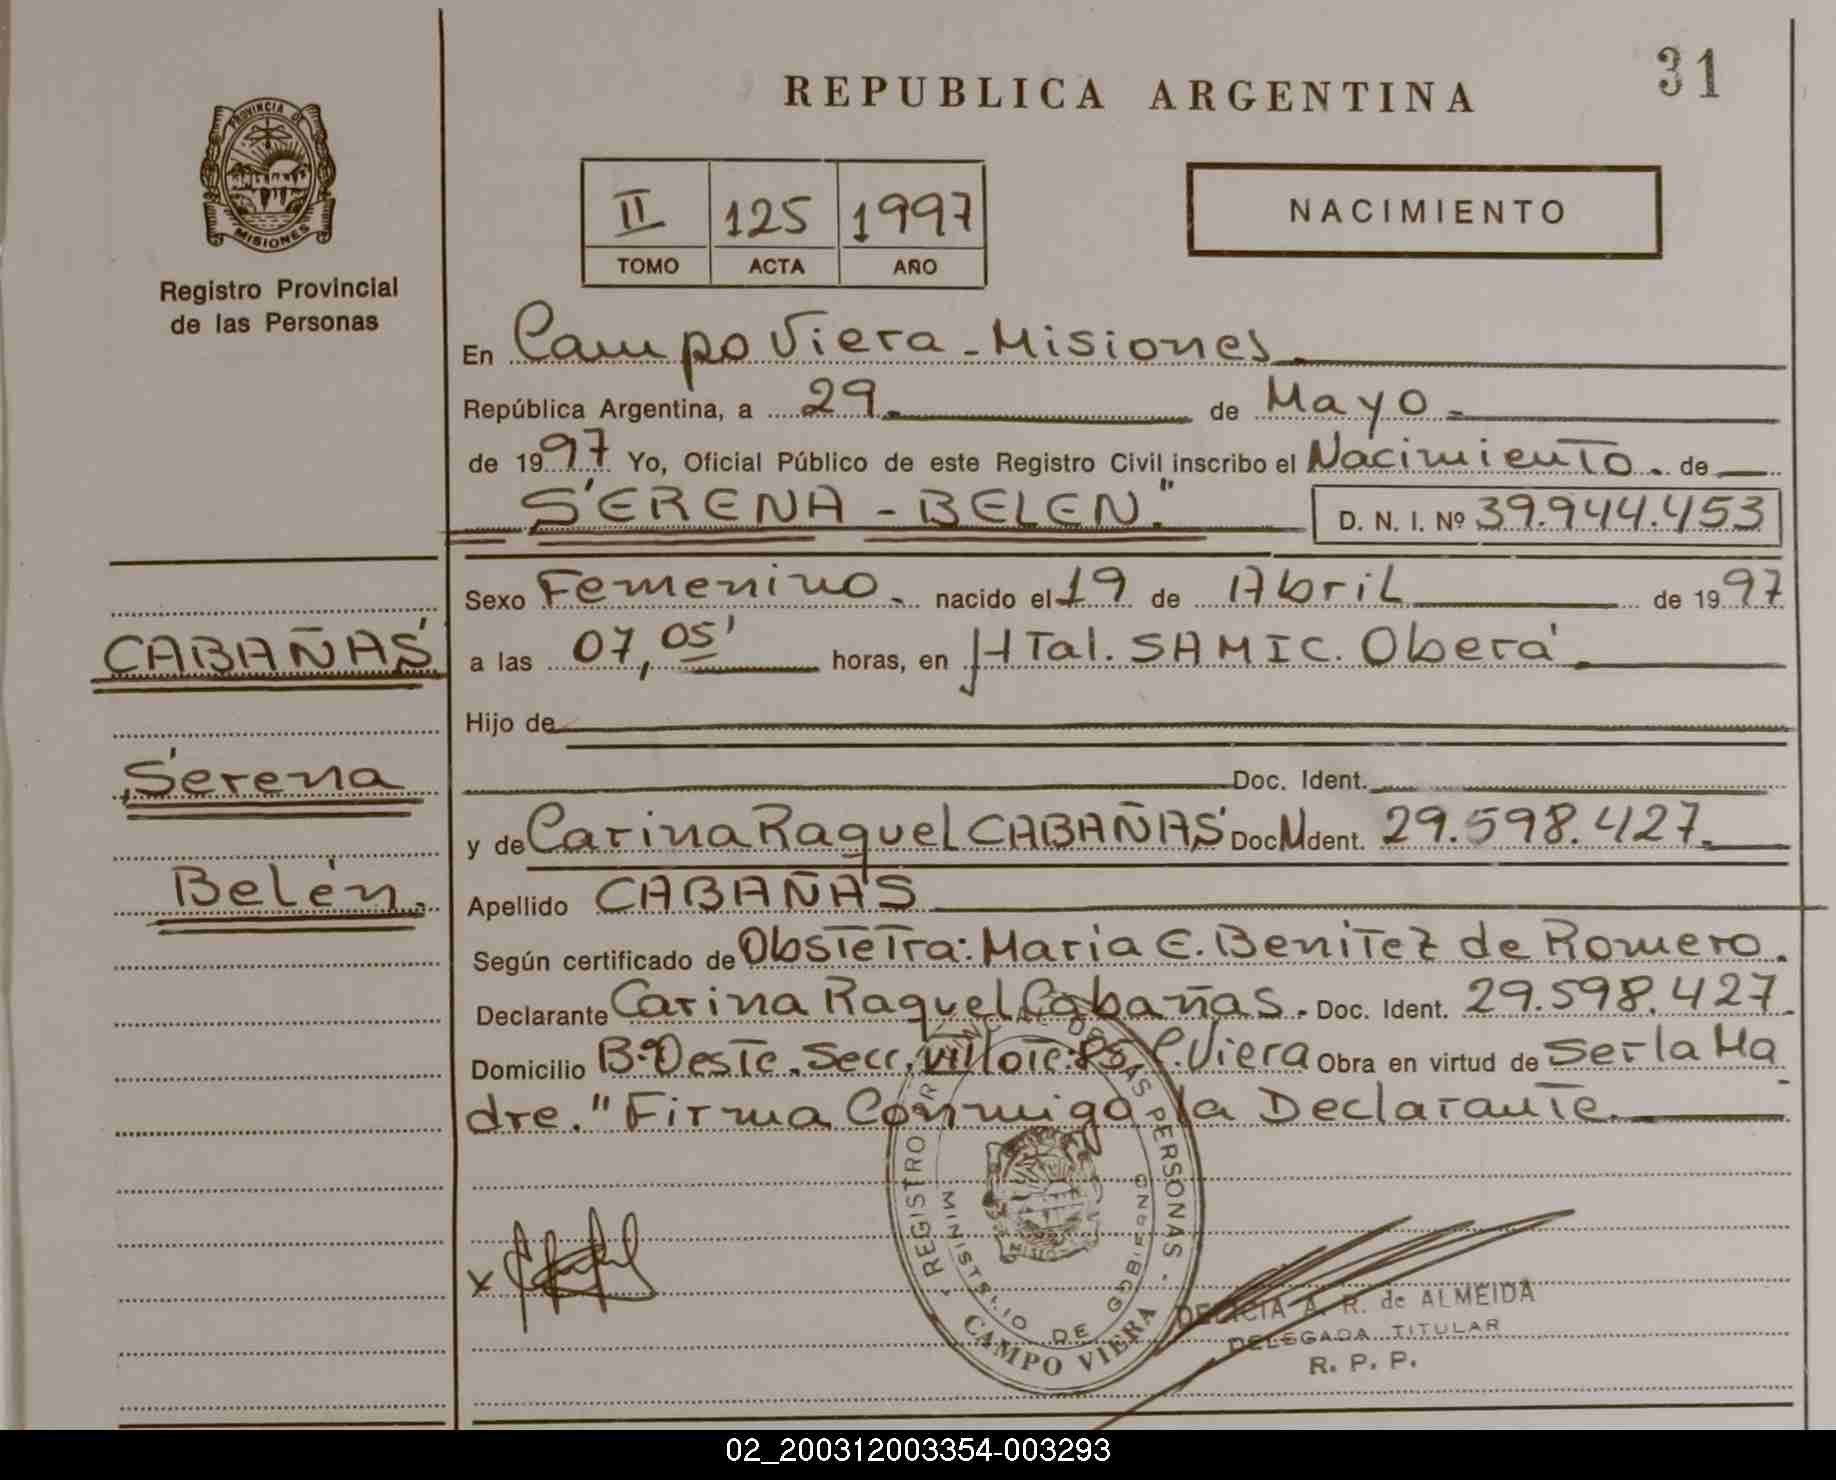 REPUBLICA ARGENTINA
31
PROVINCIA DE
MISIONES
Registro Provincial
de las Personas
II 125 1997
TOMO ACTA AÑO
NACIMIENTO
En Campo Viera - Misiones
República Argentina, a 29. de Mayo.
de 1997 Yo, Oficial Público de este Registro Civil inscribo el Nacimiento. de
SERENA - BELEN." D. N. I. Nº 39.944.453
Sexo Femenino. nacido el 19 de Abril de 1997
CABAÑAS
a las 07,05' horas, en HTal. SAMIC. Oberá
Hijo de
Serena
Doc. Ident.
y de Carina Raquel CABAÑAS Doc. Ident. 29.598.427.
Belén.
Apellido CABAÑAS
Según certificado de Obstetra: Maria E. Benitez de Romero.
Declarante Carina Raquel Cabañas. Doc. Ident. 29.598.427
Domicilio Bº Oeste. Secc. VII lote: 85 C. Viera Obra en virtud de Ser la Ma
dre." Firma Conmigo la Declarante.
REGISTRO PROVINCIAL DE LAS PERSONAS
MINISTERIO DE GOBIERNO
MISIONES
CAMPO VIERA
x
DELICIA A. R. de ALMEIDA
DELEGADA TITULAR
R. P. P.
02_200312003354-003293